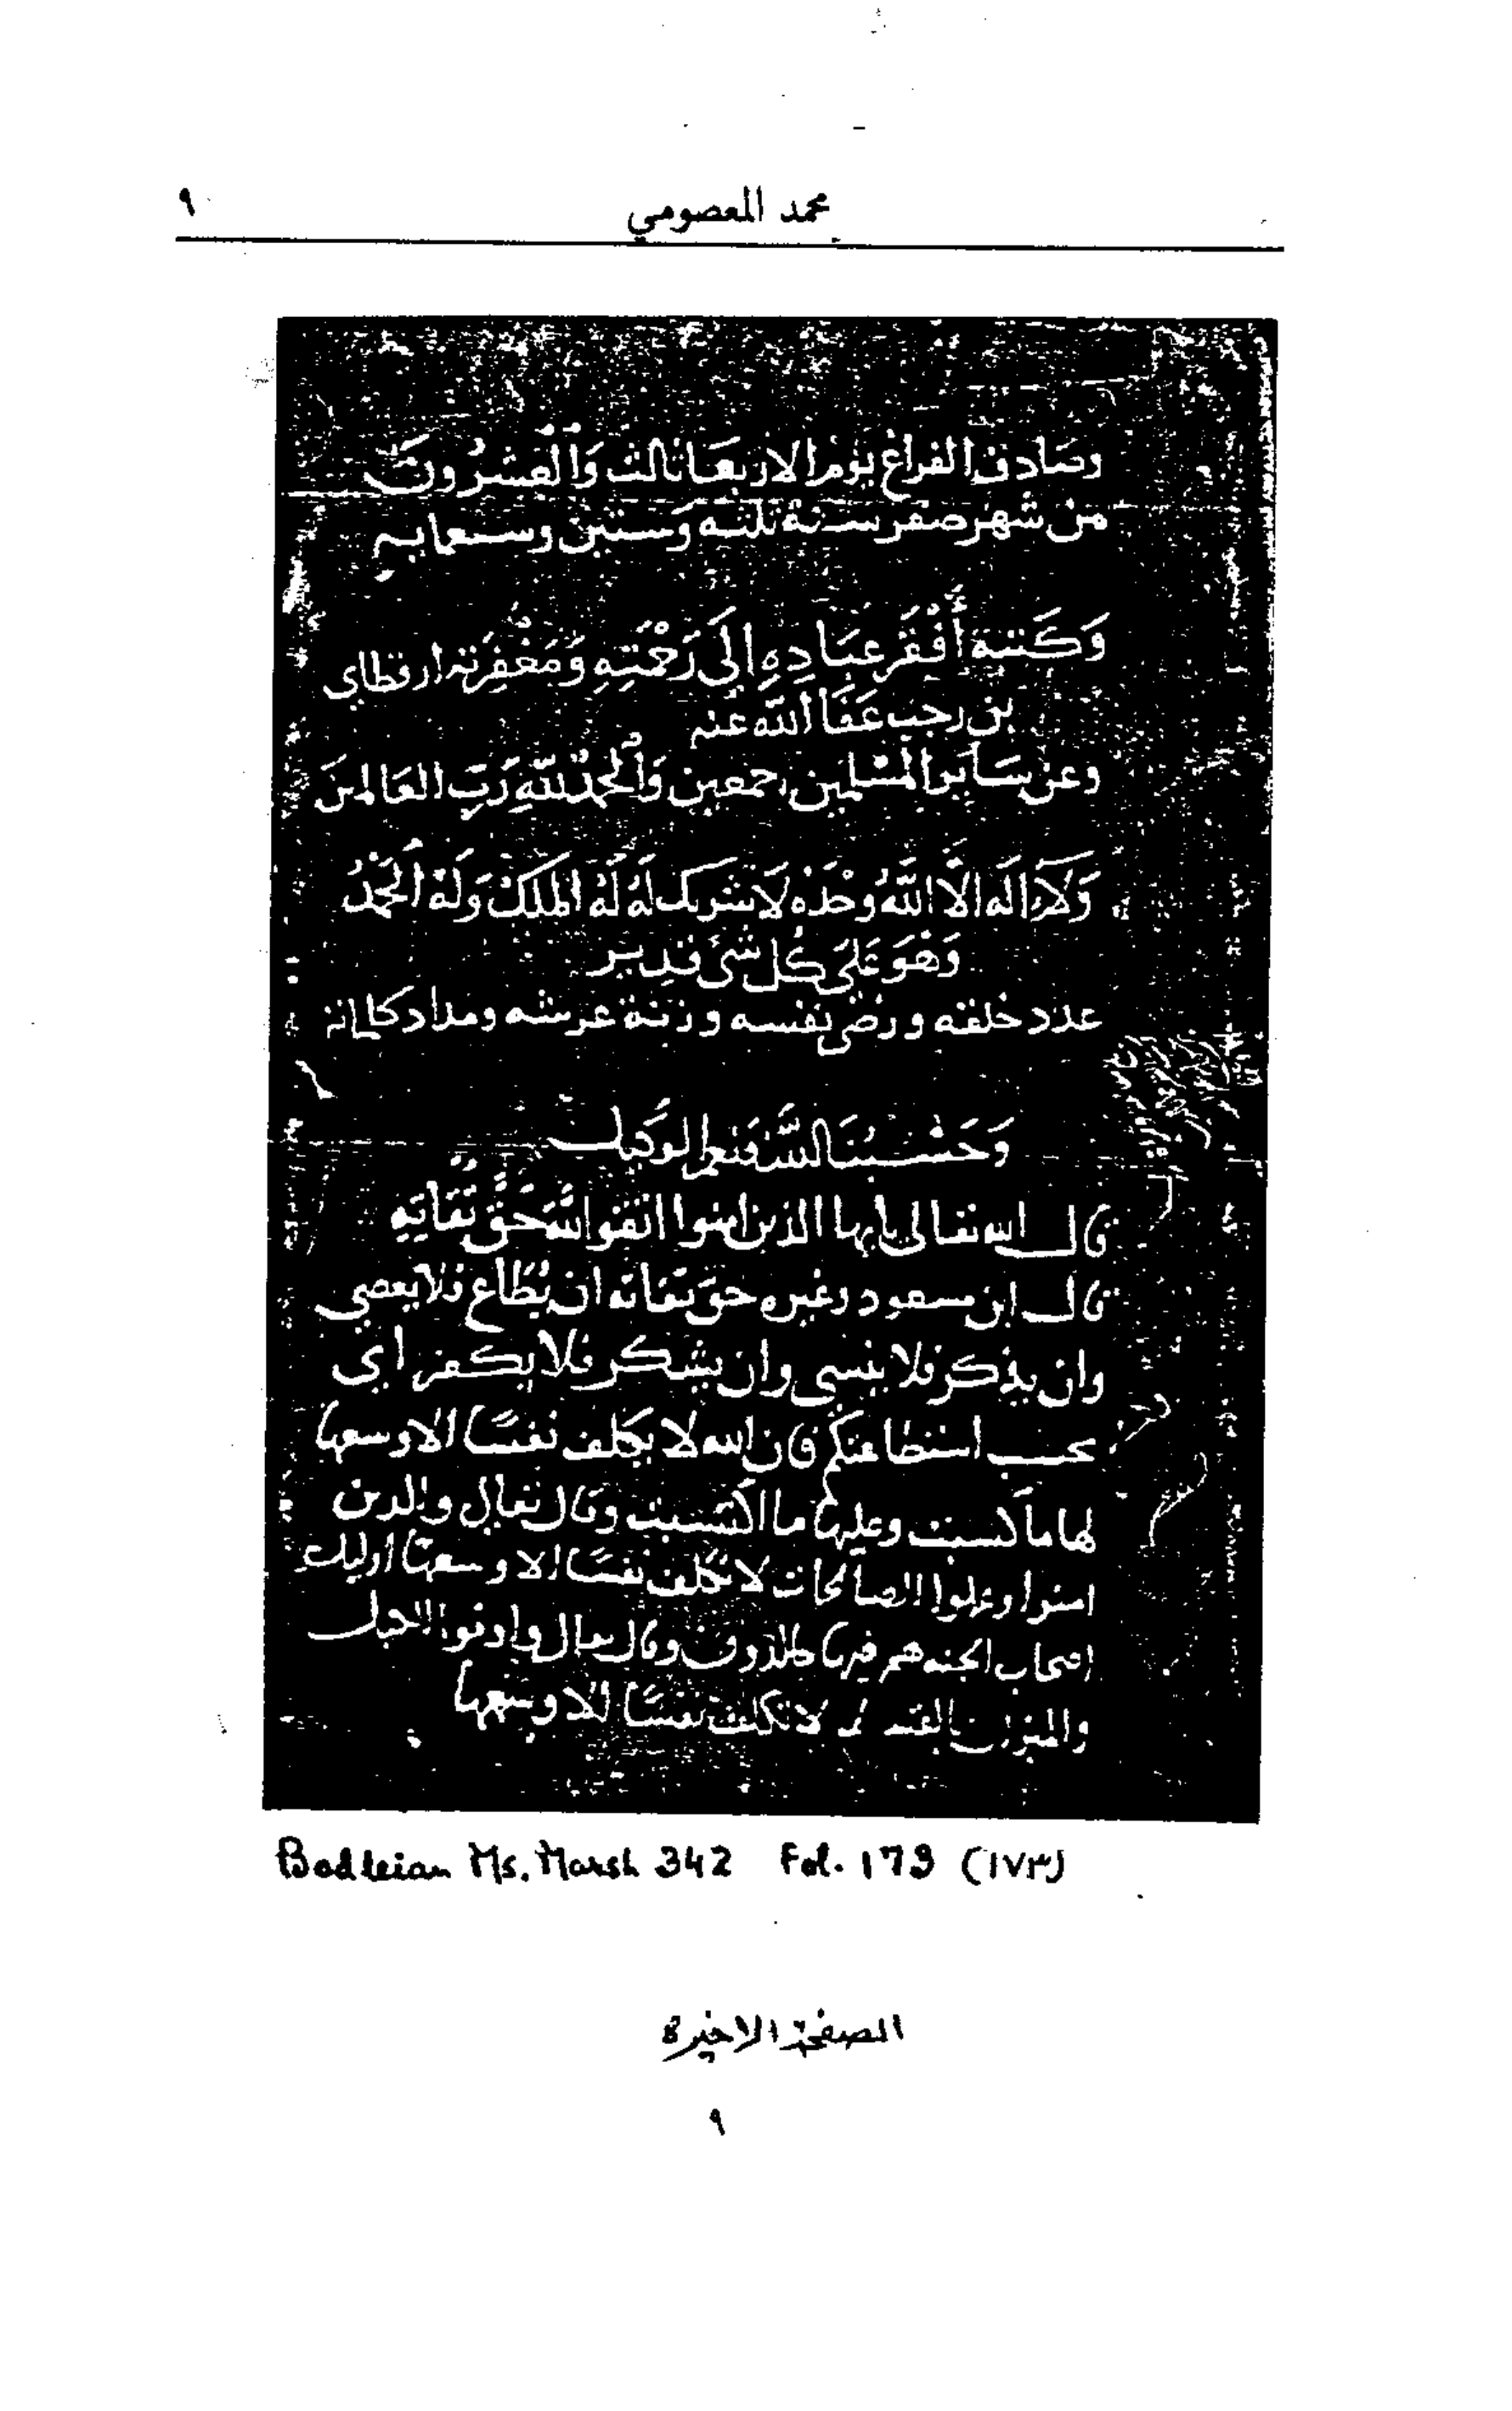 محمد المعصومي ٩
وصادف الفراغ يوم الاربعا ثالث وَالْعشرُونَ
من شهر صفر سنة ثلثه وَستين وسبعمايه
وَكَتبه أَفْقَر عبَادِهِ إلَى رَحْمَتِهِ وَمَغْفِرَته ارقطاي
بن رجب عَفَا الله عَنه
وعن سَاير المسْلمين اجمعين وَالْحَمْدُ للّهِ رَبّ العَالمينَ
وَلَا اله الَّا اللَّهُ وَحْدَهُ لَا شريك لَهُ لَهُ الملكُ وَلَهُ الْحَمْدُ
وَهُوَ عَلَى كُل شَىْ قدِير
عدد خلقه ورضى نفسه وزنة عرشه ومداد كلماته
وَحَسْبُنَا اللَّهُ وَنعم الوَكيل
قال الله تعالى يايها الذين امنوا اتقوا اللَّهَ حَقَّ تُقَاتِهِ
قال ابن مسعود وغيره حق تقاته ان يُطَاع فلا يعصى
وان يذكر فلا ينسى وان يشكر فلا يكفر اي
بحسب استطاعتكم فان الله لا يكلف نفسًا الا وسعها
لها ما كسبت وعليها ما اكتسبت وقال تعالى والدين
امنوا وعملوا الصالحات لا نكلف نفسًا الا وسعها اوليك
اصحاب الجنه هم فيها خالدون وقال تعالى واوفوا الكيل
والميزان بالقسط لا نكلف نفسًا الا وسعها
Bodleian Ms. Marsh 342 Fol. 173 (١٧٣)
الصفحة الاخيرة
٩